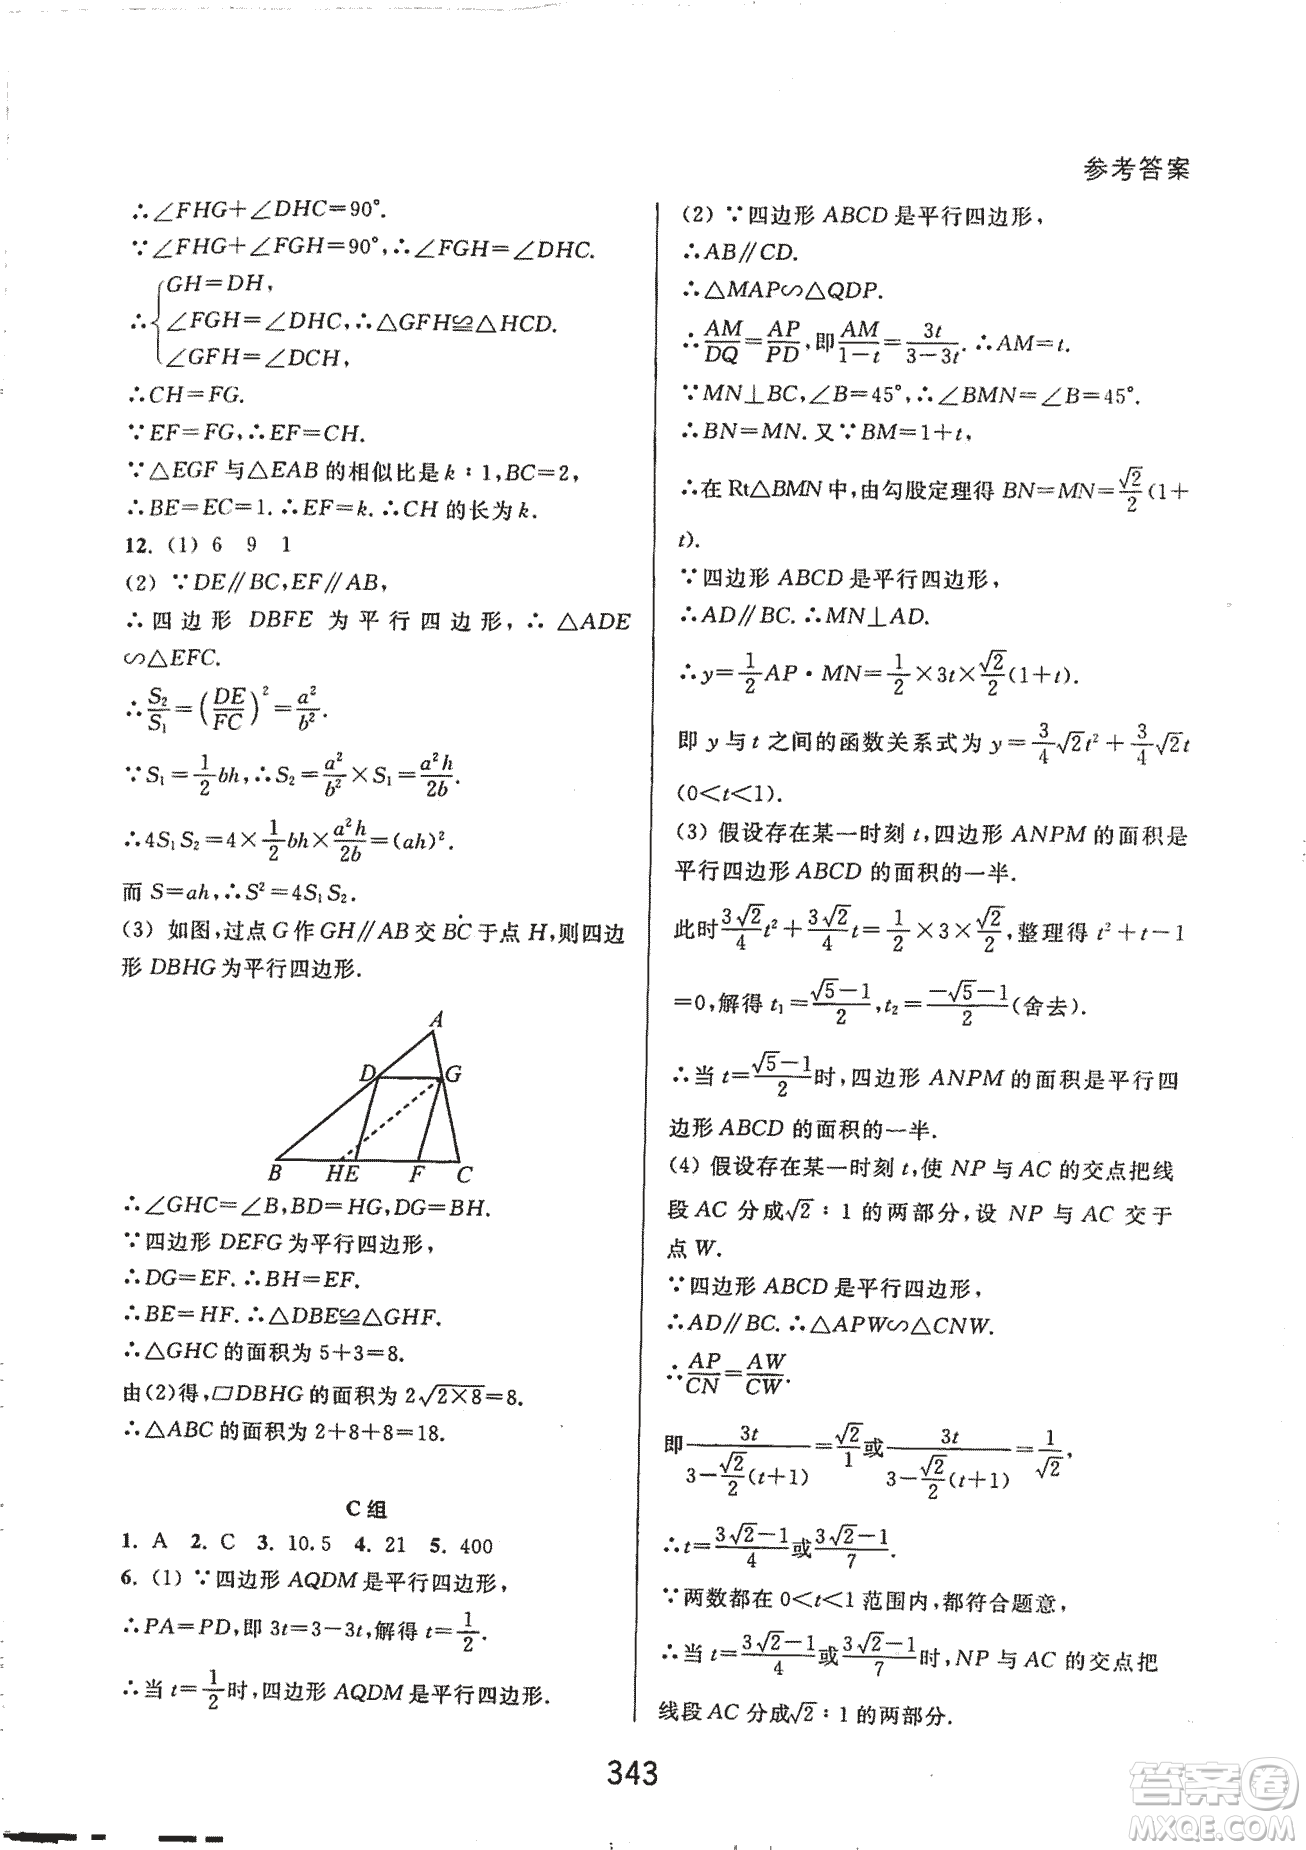 参考答案
∴∠FHG+∠DHC=90°.
∵∠FHG+∠FGH=90°,∴∠FGH=∠DHC.
∴{GH=DH,
∠FGH=∠DHC,∴△GFH≌△HCD.
∠GFH=∠DCH,
∴CH=FG.
∵EF=FG,∴EF=CH.
∵△EGF与△EAB的相似比是k∶1,BC=2,
∴BE=EC=1.∴EF=k.∴CH的长为k.
12.(1)6 9 1
(2)∵DE∥BC,EF∥AB,
∴四边形 DBFE 为平行四边形,∴△ADE
∽△EFC.
∴S₂/S₁=(DE/FC)²=a²/b².
∵S₁=1/2bh,∴S₂=a²/b²×S₁=a²h/2b.
∴4S₁S₂=4×1/2bh×a²h/2b=(ah)².
而S=ah,∴S²=4S₁S₂.
(3)如图,过点G作GH∥AB交BC于点H,则四边
形DBHG为平行四边形.
A
D G
B H E F C
∴∠GHC=∠B,BD=HG,DG=BH.
∵四边形DEFG为平行四边形,
∴DG=EF.∴BH=EF.
∴BE=HF.∴△DBE≌△GHF.
∴△GHC的面积为5+3=8.
由(2)得,▱DBHG的面积为2√(2×8)=8.
∴△ABC的面积为2+8+8=18.
C组
1. A 2. C 3. 10.5 4. 21 5. 400
6.(1)∵四边形AQDM是平行四边形,
∴PA=PD,即3t=3-3t,解得t=1/2.
∴当t=1/2时,四边形AQDM是平行四边形.
(2)∵四边形ABCD是平行四边形,
∴AB∥CD.
∴△MAP∽△QDP.
∴AM/DQ=AP/PD,即AM/(1-t)=3t/(3-3t).∴AM=t.
∵MN⊥BC,∠B=45°,∴∠BMN=∠B=45°.
∴BN=MN.又∵BM=1+t,
∴在Rt△BMN中,由勾股定理得BN=MN=√2/2(1+
t).
∵四边形ABCD是平行四边形,
∴AD∥BC.∴MN⊥AD.
∴y=1/2AP·MN=1/2×3t×√2/2(1+t).
即y与t之间的函数关系式为y=3/4√2t²+3/4√2t
(0<t<1).
(3)假设存在某一时刻t,四边形ANPM的面积是
平行四边形ABCD的面积的一半.
此时3√2/4t²+3√2/4t=1/2×3×√2/2,整理得t²+t-1
=0,解得t₁=(√5-1)/2,t₂=(-√5-1)/2(舍去).
∴当t=(√5-1)/2时,四边形ANPM的面积是平行四
边形ABCD的面积的一半.
(4)假设存在某一时刻t,使NP与AC的交点把线
段AC分成√2∶1的两部分,设NP与AC交于
点W.
∵四边形ABCD是平行四边形,
∴AD∥BC.∴△APW∽△CNW.
∴AP/CN=AW/CW.
即3t/(3-√2/2(t+1))=√2/1或3t/(3-√2/2(t+1))=1/√2,
∴t=(3√2-1)/4或(3√2-1)/7.
∵两数都在0<t<1范围内,都符合题意,
∴当t=(3√2-1)/4或(3√2-1)/7时,NP与AC的交点把
线段AC分成√2∶1的两部分.
343
答案卷
MXQE.COM